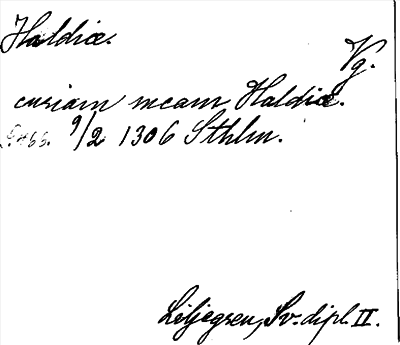 Haldiæ.
Vg.
curiam meam Haldiæ.
9/2 1306 Sthlm.
Liljegren, Sv. dipl. II.